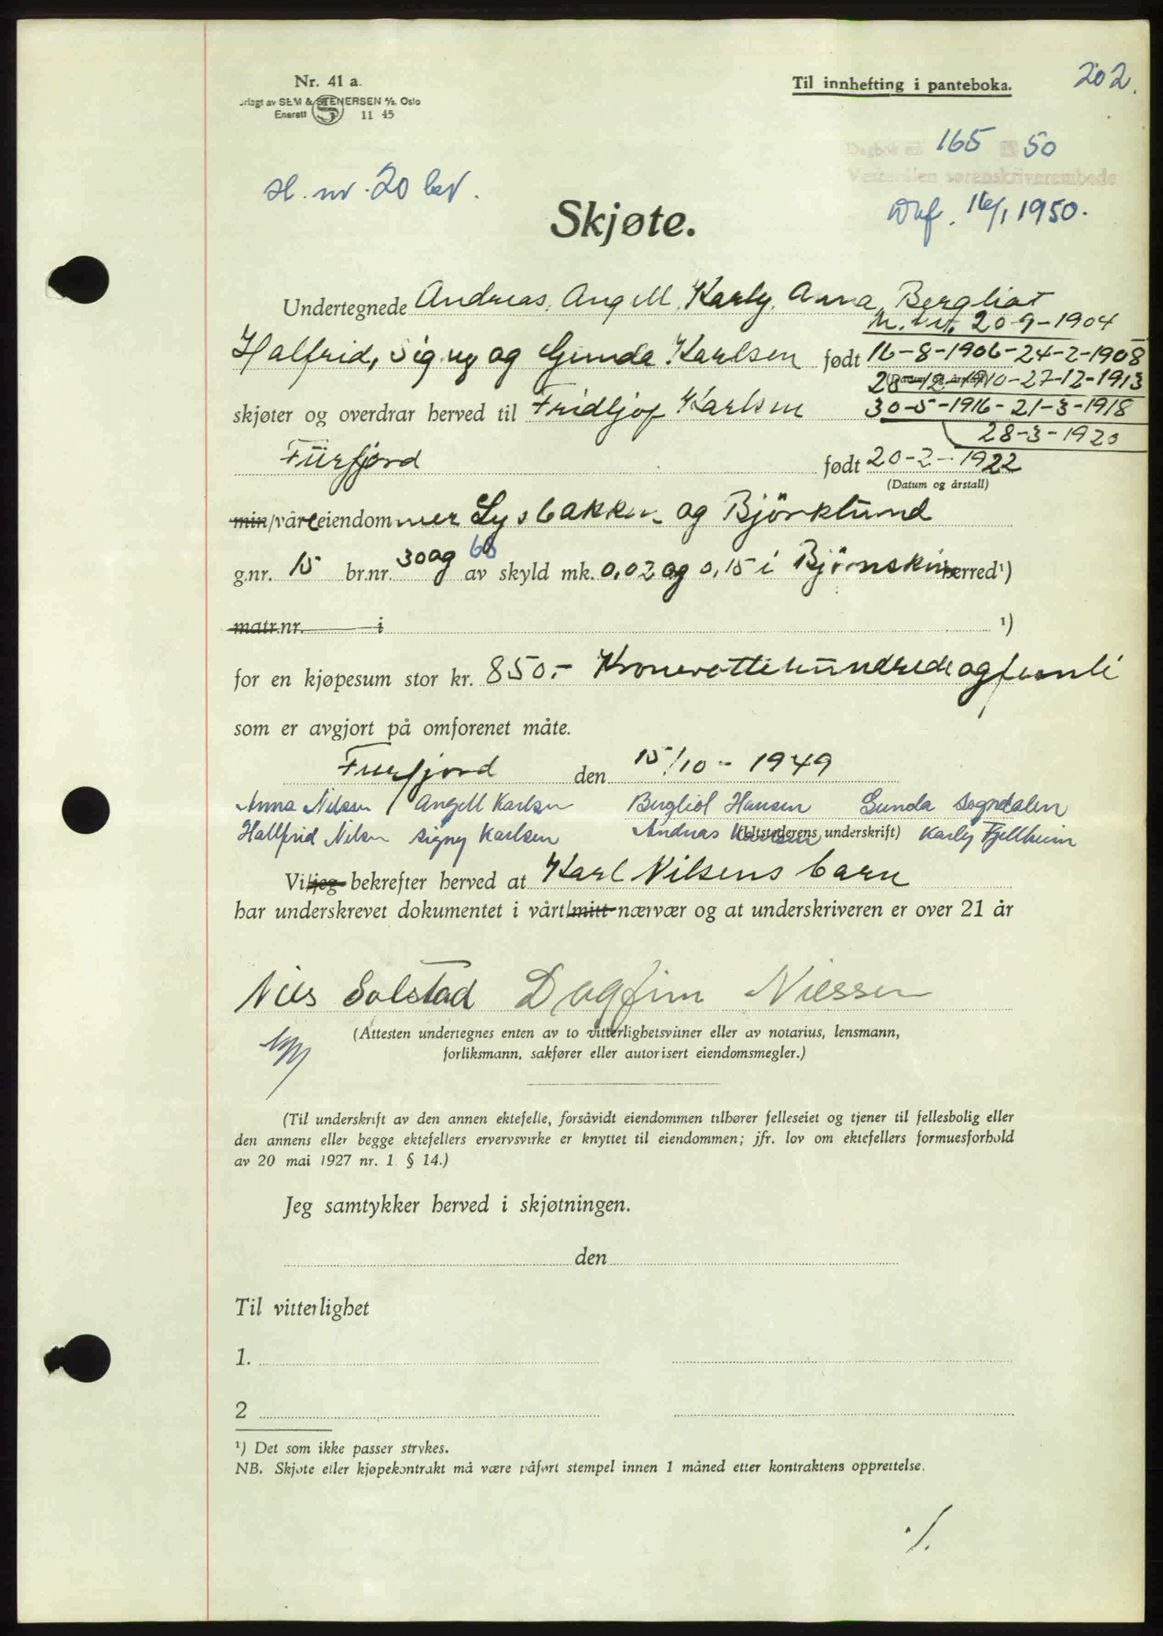 202.
Nr. 41 a.
Til innhefting i panteboka.
SEM & STENERSEN A/S. Oslo
Enerett S 11 45
Dagbok nr. 165 50
Vesterålen sorenskriverembede
16/1 1950.
nr. 20
Skjøte.
Undertegnede Andreas, Angell, Karly, Anna, Bergliot
20-9-1904
Halfrid, Signy og Gunda Karlsen født 16-8-1906-24-2-1908
(Datum og årstall)
28-12-1910-27-12-1913
skjøter og overdrar herved til Fridtjof Karlsen 30-5-1916-21-3-1918
28-3-1920
Fürfjord født 20-2-1922
(Datum og årstall)
min/våre eiendommer Lysbakken og Björklund
g.nr. 15 br.nr. 30 og 66 av skyld mk. 0,02 og 0,15 i Björnskin herred¹)
matr.nr. i ¹)
for en kjøpesum stor kr. 850.- Kroneråttehundredeogfemti
som er avgjort på omforenet måte.
Furfjord den 15/10 - 1949
Anna Nilsen Angell Karlsen Bergliot Hansen Gunda Sogndalen
Hallfrid Nilsen Signy Karlsen Andreas Karlsen (Utstederens underskrift) Karly Fjellheim
Vi/jeg bekrefter herved at Karl Nilsens barn
har underskrevet dokumentet i vårt/mitt nærvær og at underskriveren er over 21 år
Nils Solstad Dagfinn Nilssen
(Attesten undertegnes enten av to vitterlighetsvitner eller av notarius, lensmann,
forliksmann, sakfører eller autorisert eiendomsmegler.)
(Til underskrift av den annen ektefelle, forsåvidt eiendommen tilhører felleseiet og tjener til fellesbolig eller
den annens eller begge ektefellers ervervsvirke er knyttet til eiendommen; jfr. lov om ektefellers formuesforhold
av 20 mai 1927 nr. 1 § 14.)
Jeg samtykker herved i skjøtningen.
den
Til vitterlighet
1.
2
¹) Det som ikke passer strykes.
NB. Skjøte eller kjøpekontrakt må være påført stempel innen 1 måned etter kontraktens opprettelse.
./.